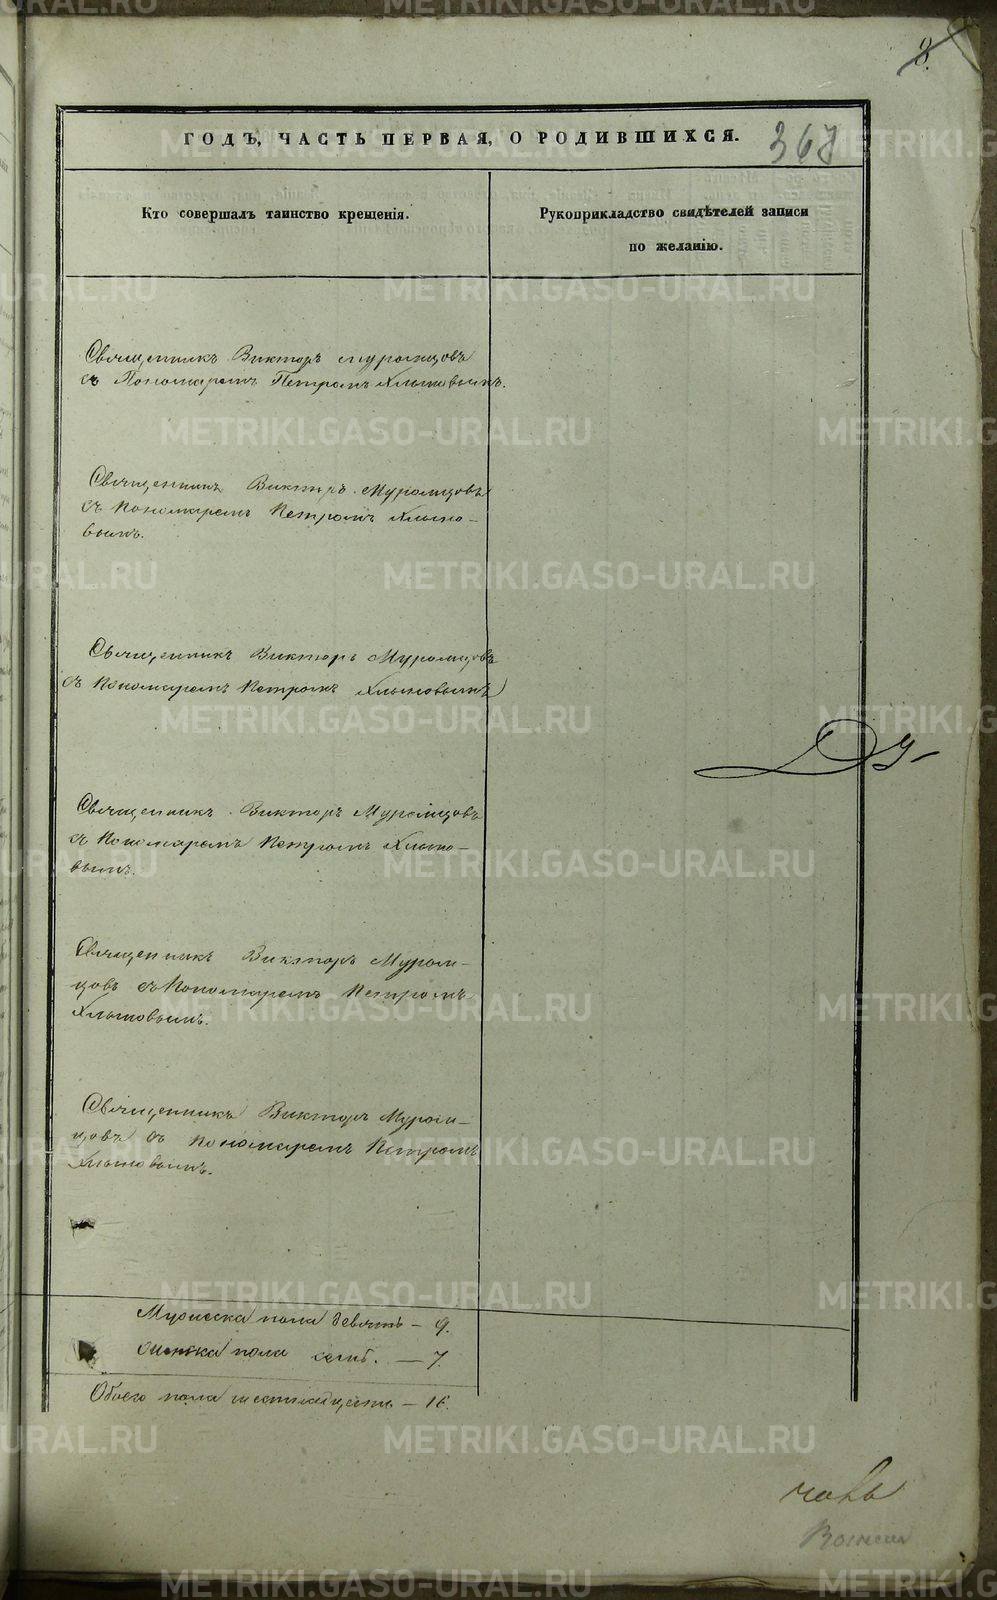 8.
ГОДЪ, ЧАСТЬ ПЕРВАЯ, О РОДИВШИХСЯ.
367
Кто совершалъ таинство крещенія.
Рукоприкладство свидѣтелей записи
по желанію.
Священникъ Викторъ Муромцовъ
съ Пономаремъ Петромъ Хлыновымъ.
Священникъ Викторъ Муромцовъ
съ Пономаремъ Петромъ Хлыно-
вымъ.
Священникъ Викторъ Муромцовъ
съ Пономаремъ Петромъ Хлыновымъ
Священникъ Викторъ Муромцовъ
съ Пономаремъ Петромъ Хлыно-
вымъ.
Священникъ Викторъ Муром-
цовъ съ Пономаремъ Петромъ
Хлыновымъ.
Священникъ Викторъ Муром-
цовъ съ Пономаремъ Петромъ
Хлыновымъ.
Мужеска пола девять – 9.
Женска пола семь. – 7.
Обоего пола шестнадцать – 16.
METRIKI.GASO-URAL.RU